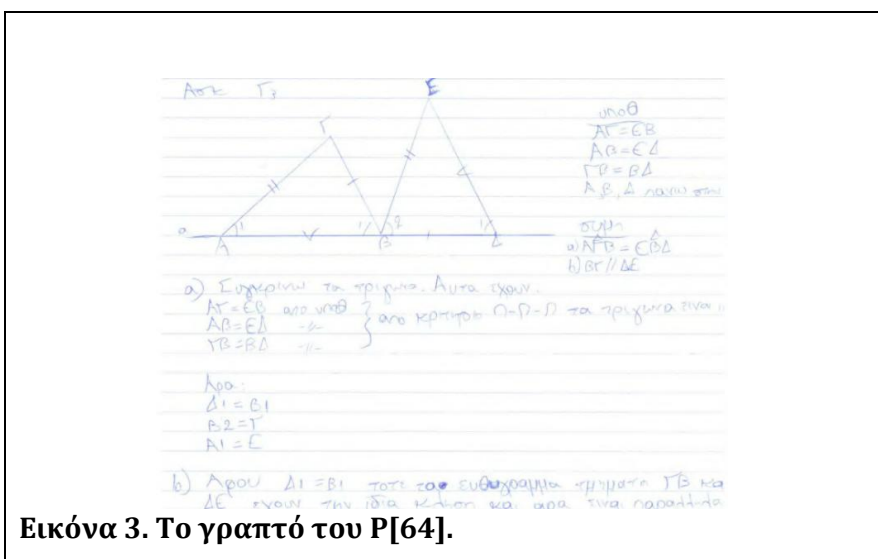 Ασκ Γ3
Ε
Γ
υποθ
ΑΓ=ΕΒ
ΑΒ=ΕΔ
ΓΒ=ΒΔ
Α,Β,Δ πανω στην
1
1
2
1
Α
Β
Δ
συμπ
a) ΑΓΒ = ΕΒΔ
b) ΒΓ//ΔΕ
a) Συγκρινω τα τριγωνα. Αυτα εχουν.
ΑΓ=ΕΒ απο υποθ
ΑΒ=ΕΔ -//-
ΓΒ=ΒΔ -//-
απο κριτηριο Π-Π-Π τα τριγωνα ειναι
Αρα:
Δ1=Β1
Β2=Γ
Α1=Ε
b) Αφου Δ1=Β1 τοτε τα ευθυγραμμα τμηματα ΓΒ και
ΔΕ εχουν την ιδια κλιση και αρα ειναι παραλληλα
Εικόνα 3. Το γραπτό του Ρ[64].